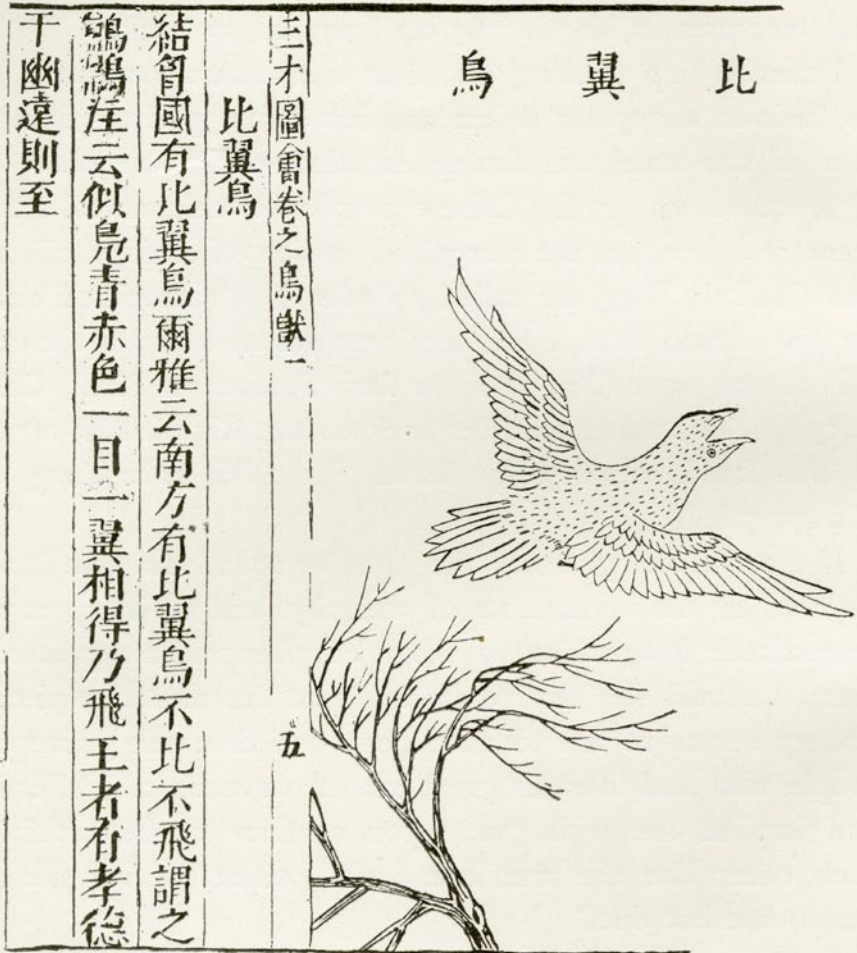 比翼鳥
三才圖會卷之鳥獸一
五
比翼鳥
結胷國有比翼鳥爾雅云南方有比翼鳥不比不飛謂之
鶼鶼注云似鳬青赤色一目一翼相得乃飛王者有孝德
于幽遠則至